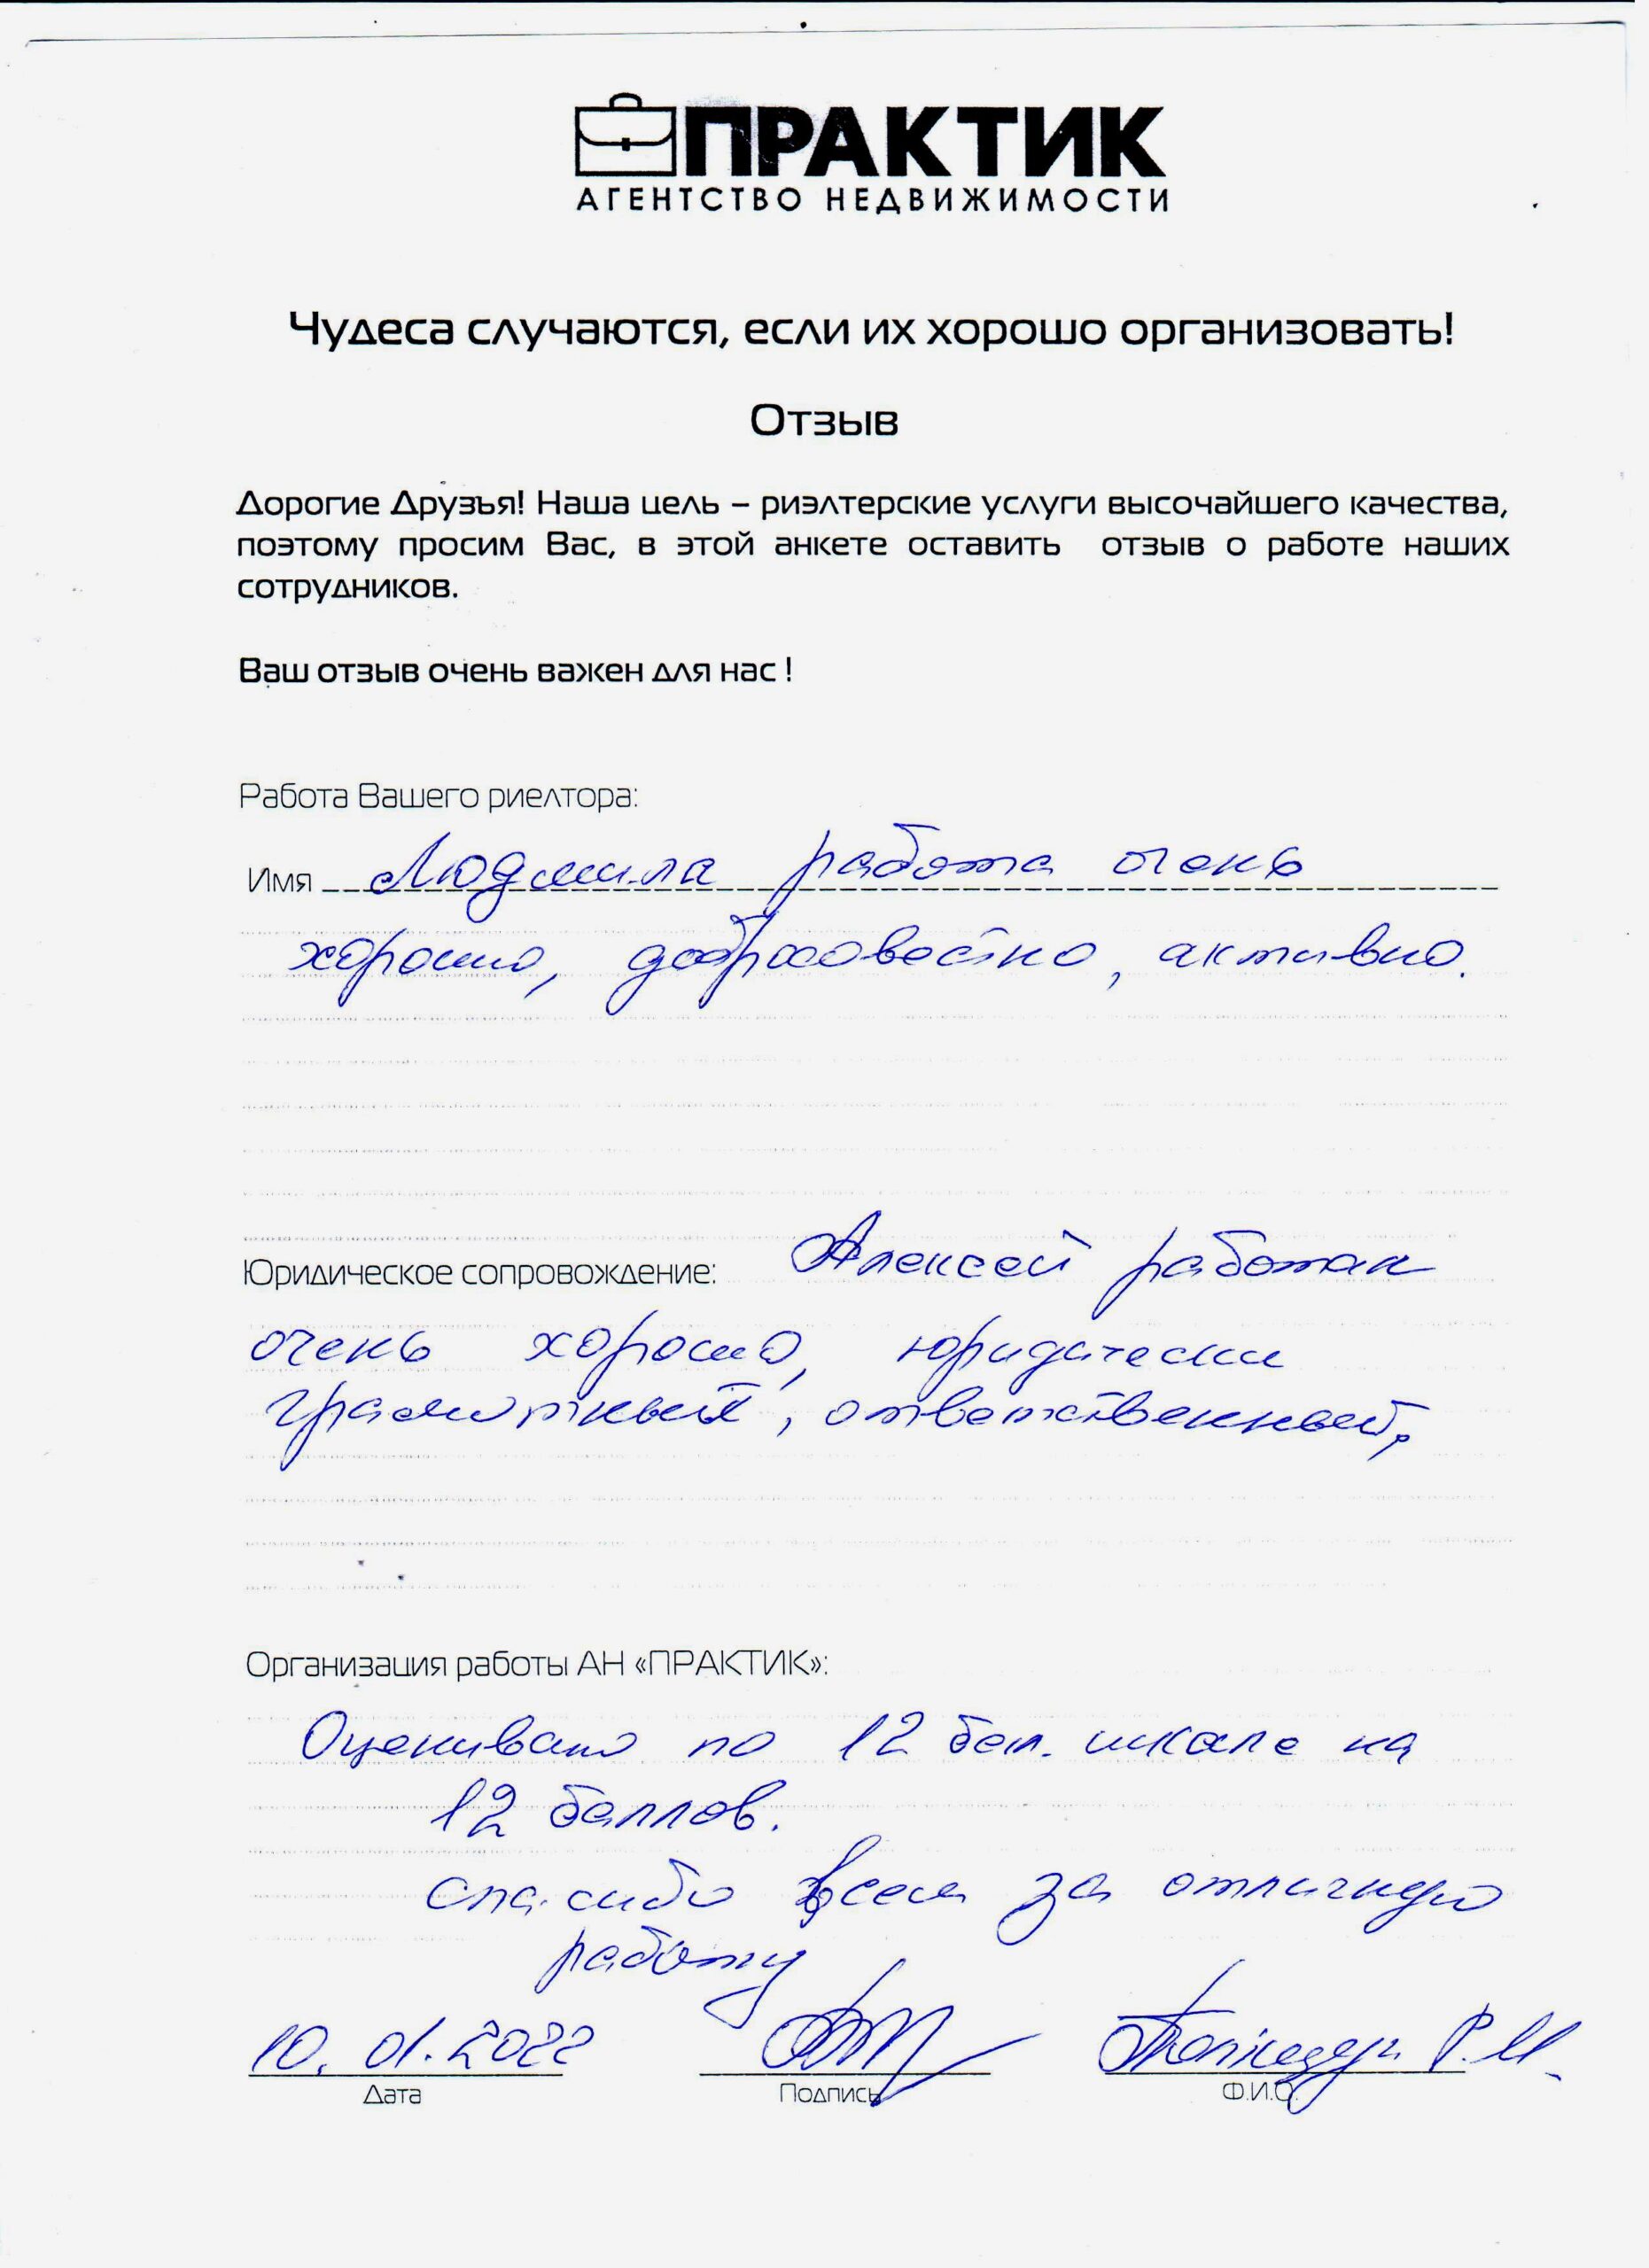 ПРАКТИК
АГЕНТСТВО НЕДВИЖИМОСТИ
Чудеса случаются, если их хорошо организовать!
Отзыв
Дорогие Друзья! Наша цель – риэлтерские услуги высочайшего качества,
поэтому просим Вас, в этой анкете оставить отзыв о работе наших
сотрудников.
Ваш отзыв очень важен для нас !
Работа Вашего риелтора:
Имя Людмила работа очень
хорошо, добросовестно, активно.
Юридическое сопровождение: Алексей работал
очень хорошо, юридически
грамотный, ответственный,
Организация работы АН «ПРАКТИК»:
Оцениваю по 12 бал. шкале на
12 баллов.
спасибо всем за отличную
работу
10. 01. 2022 Р.И.
Дата Подпись Ф.И.О.